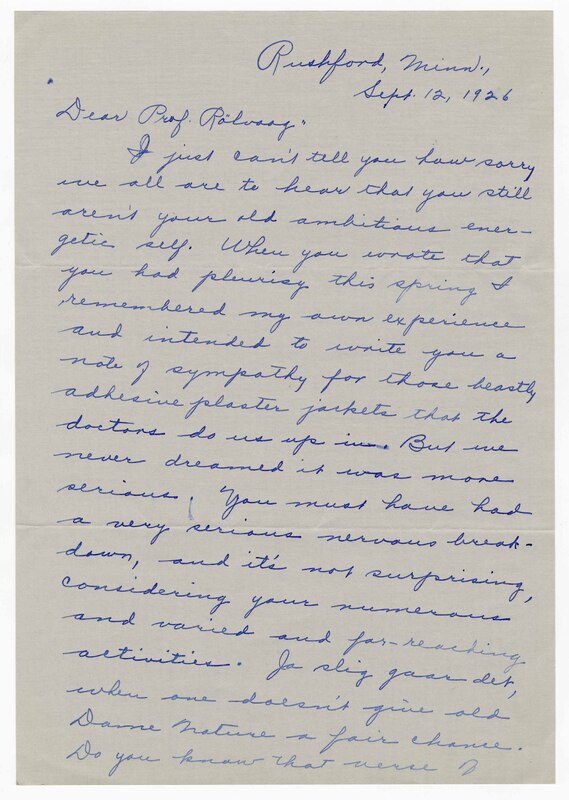 Rushford, Minn.,
Sept. 12, 1926
Dear Prof. Rölvaag:
I just can't tell you how sorry
we all are to hear that you still
aren't your old ambitious ener-
getic self. When you wrote that
you had pleurisy this spring I
remembered my own experience
and intended to write you a
note of sympathy for those beastly
adhesive plaster jackets that the
doctors do us up in. But we
never dreamed it was more
serious. You must have had
a very serious nervous break-
down, and it's not surprising,
considering your numerous
and varied and far-reaching
activities. Ja slig gaar det,
when one doesn't give old
Dame Nature a fair chance.
Do you know that verse of